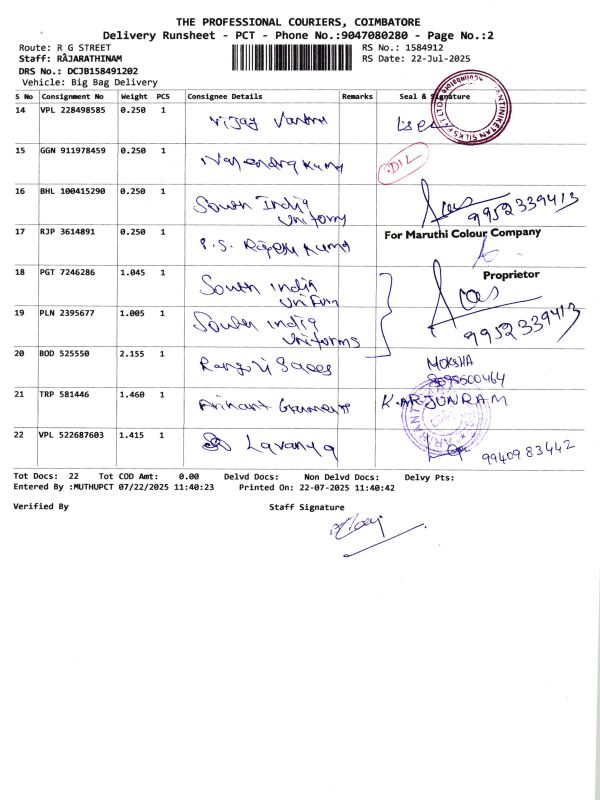 THE PROFESSIONAL COURIERS, COIMBATORE
Delivery Runsheet - PCT - Phone No.:9047080280 - Page No.:2
Route: R G STREET RS No.: 1584912
Staff: RAJARATHINAM RS Date: 22-Jul-2025
DRS No.: DCJB158491202
Vehicle: Big Bag Delivery
S No Consignment No Weight PCS Consignee Details Remarks Seal & Signature
14 VPL 228498585 0.250 1 Vijay
15 GGN 911978459 0.250 1 Kumar
16 BHL 100415290 0.250 1 South India
Uniforms
9952339413
17 RJP 3614891 0.250 1 P.S. Rajesh Kumar For Maruthi Colour Company
Proprietor
18 PGT 7246286 1.045 1 South India
Uniform
19 PLN 2395677 1.005 1 South India
Uniforms
9952339413
20 BOD 525550 2.155 1 MOKSHA
21 TRP 581446 1.460 1 Arihant Garments K. ARJUNRAM
22 VPL 522687603 1.415 1 Lavanya 9940983442
Tot Docs: 22 Tot COD Amt: 0.00 Delvd Docs: Non Delvd Docs: Delvy Pts:
Entered By :MUTHUPCT 07/22/2025 11:40:23 Printed On: 22-07-2025 11:40:42
Verified By Staff Signature